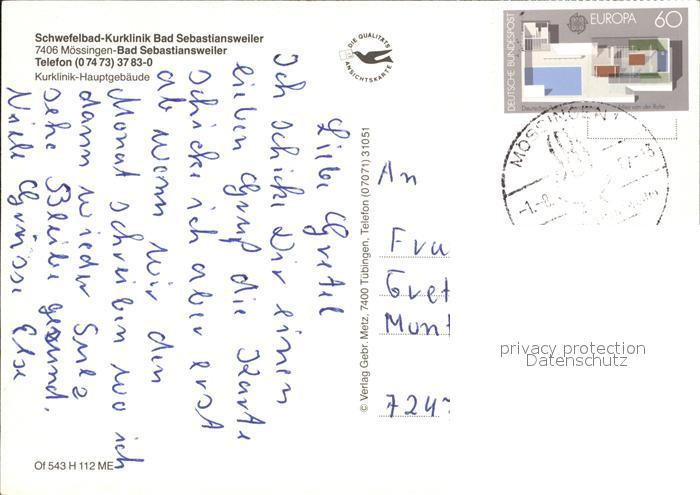 Schwefelbad-Kurklinik Bad Sebastiansweiler
7406 Mössingen-Bad Sebastiansweiler
Telefon (0 74 73) 37 83-0
Kurklinik-Hauptgebäude
DIE QUALITÄTS
ANSICHTSKARTE
Liebe Gretel
Ich schicke Dir einen
lieben Gruß die Karte
schicke ich aber erst
ab wenn wir den
Monat schreiben wo ich
dann wieder
sehe Bleibe gesund.
Viele Grüsse Else
Of 543 H 112 ME
© Verlag Gebr. Metz, 7400 Tübingen, Telefon (07071) 31051
DEUTSCHE BUNDESPOST
EUROPA
60
MÖSSINGEN 1
An
Frau
Gret
Mont
7247
privacy protection
Datenschutz